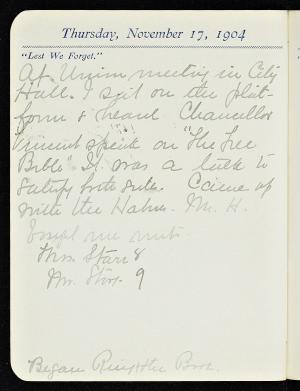 Thursday, November 17, 1904
"Lest We Forget."
At Union meeting in City
Hall. I sit on the plat-
form & heard Chancellor
Vincent speak on "The Free
Bible". It was a talk to
satisfy both sides. Came up
with the Hahns. Mr. H.
me
Mrs. Starr 8
Mr. 9
Began Ring &the Book.